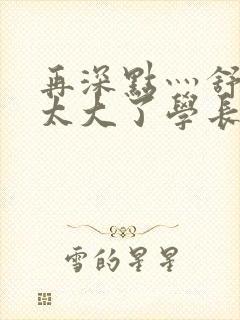 再深點灬舒
太大了學長
雪的星星